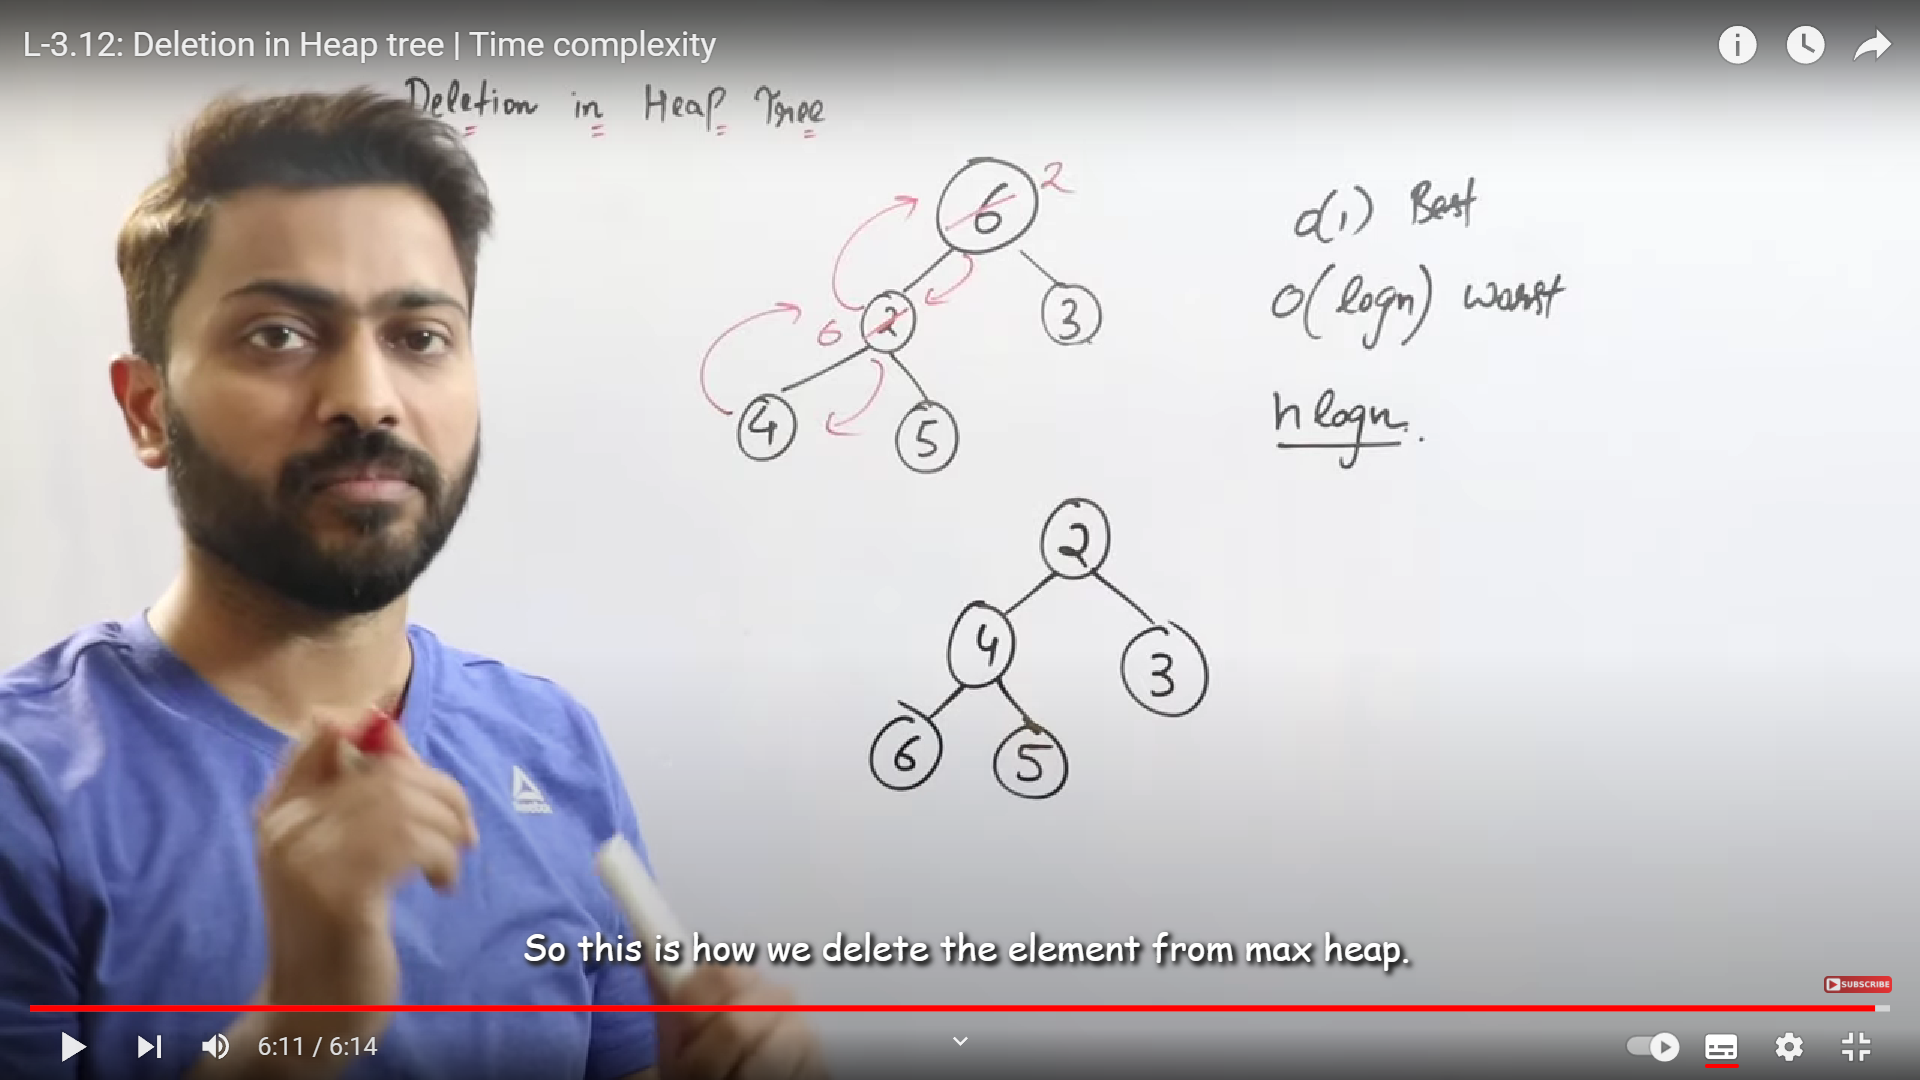 L-3.12: Deletion in Heap tree | Time complexity
Deletion in Heap Tree
6 2
6 2
3
4
5
O(1) Best
O(logn) worst
nlogn.
2
4
3
6
5
Reebok
So this is how we delete the element from max heap.
SUBSCRIBE
6:11 / 6:14